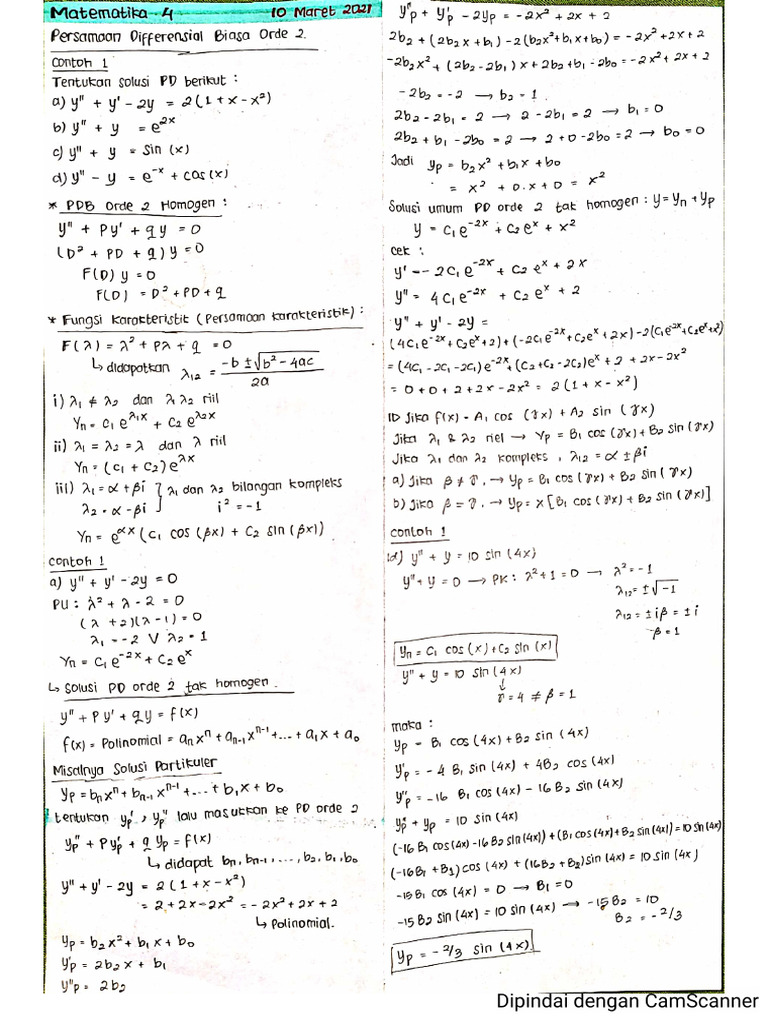 Matematika - 4
10 Maret 2021
Persamaan Differensial Biasa Orde 2.
Contoh 1
Tentukan solusi PD berikut :
a) y" + y' - 2y = 2(1+x-x²)
b) y" + y = e^2x
c) y" + y = sin (x)
d) y" - y = e^-x + cos(x)
* PDB Orde 2 Homogen :
y" + Py' + qy = 0
(D² + PD + q) y = 0
F(D) y = 0
F(D) = D² + PD + q
* Fungsi Karakteristik (Persamaan karakteristik) :
F(λ) = λ² + Pλ + q = 0
↳ didapatkan λ12 = (-b ± √(b² - 4ac))/2a
i) λ1 ≠ λ2 dan λ1 λ2 riil
Yn = C1 e^λ1x + C2 e^λ2x
ii) λ1 = λ2 = λ dan λ riil
Yn = (C1 + C2) e^λx
iii) λ1 = α + βi } λ1 dan λ2 bilangan kompleks
λ2 = α - βi } i² = -1
Yn = e^αx (C1 cos (βx) + C2 sin (βx))
Contoh 1
a) y" + y' - 2y = 0
PU : λ² + λ - 2 = 0
(λ + 2)(λ - 1) = 0
λ1 = -2 V λ2 = 1
Yn = C1 e^-2x + C2 e^x
↳ Solusi PD orde 2 tak homogen.
y" + Py' + qy = f(x)
f(x) = Polinomial = an x^n + an-1 x^n-1 + ... + a1x + a0
Misalnya Solusi Partikuler
Yp = bn x^n + bn-1 x^n-1 + ... + b1x + b0
tentukan yp', yp" lalu masukkan ke PD orde 2
yp" + Pyp' + q yp = f(x)
↳ didapat bn, bn-1, ..., b2, b1, b0
y" + y' - 2y = 2(1+x-x²)
= 2 + 2x - 2x² = -2x² + 2x + 2
↳ Polinomial.
Yp = b2x² + b1x + b0
Y'p = 2b2x + b1
Y"p = 2b2
Y"p + Y'p - 2yp = -2x² + 2x + 2
2b2 + (2b2x + b1) - 2(b2x² + b1x + b0) = -2x² + 2x + 2
-2b2x² + (2b2 - 2b1) x + 2b2 + b1 - 2b0 = -2x² + 2x + 2
-2b2 = -2 → b2 = 1
2b2 - 2b1 = 2 → 2 - 2b1 = 2 → b1 = 0
2b2 + b1 - 2b0 = 2 → 2 + 0 - 2b0 = 2 → b0 = 0
Jadi Yp = b2x² + b1x + b0
= x² + 0.x + 0 = x²
Solusi umum PD orde 2 tak homogen : y = Yn + Yp
y = C1 e^-2x + C2 e^x + x²
cek :
y' = -2C1 e^-2x + C2 e^x + 2x
y" = 4C1 e^-2x + C2 e^x + 2
y" + y' - 2y =
(4C1 e^-2x + C2 e^x + 2) + (-2C1 e^-2x + C2 e^x + 2x) - 2(C1 e^-2x + C2 e^x + x²)
= (4C1 - 2C1 - 2C1) e^-2x + (C2 + C2 - 2C2) e^x + 2 + 2x - 2x²
= 0 + 0 + 2 + 2x - 2x² = 2(1 + x - x²)
Jika f(x) = A1 cos (γx) + A2 sin (γx)
Jika λ1 & λ2 riel → Yp = B1 cos (γx) + B2 sin (γx)
Jika λ1 dan λ2 kompleks, λ12 = α ± βi
a) Jika β ≠ γ, → Yp = B1 cos (γx) + B2 sin (γx)
b) Jika β = γ, → Yp = x [B1 cos (γx) + B2 sin (γx)]
contoh 1
1d) y" + y = 10 sin (4x)
y" + y = 0 → PK : λ² + 1 = 0 → λ² = -1
λ12 = ±√-1
λ12 = ± iβ = ± i
β = 1
Yn = C1 cos (x) + C2 sin (x)
y" + y = 10 sin (4x)
↓
γ = 4 ≠ β = 1
maka :
Yp = B1 cos (4x) + B2 sin (4x)
Y'p = -4 B1 sin (4x) + 4B2 cos (4x)
Y"p = -16 B1 cos (4x) - 16 B2 sin (4x)
Y"p + Yp = 10 sin (4x)
(-16 B1 cos (4x) - 16 B2 sin (4x)) + (B1 cos (4x) + B2 sin (4x)) = 10 sin (4x)
(-16 B1 + B1) cos (4x) + (16B2 + B2) sin (4x) = 10 sin (4x)
-15 B1 cos (4x) = 0 → B1 = 0
-15 B2 sin (4x) = 10 sin (4x) → -15 B2 = 10
B2 = -2/3
Yp = -2/3 sin (4x)
Dipindai dengan CamScanner